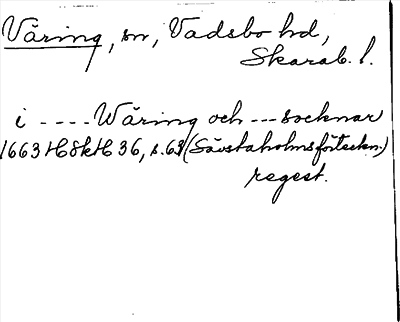 Våring, sn, Vadsbo hd,
Skarab. l.
i ---- Wåring och --- socknar
1663 HSkH 36, s. 63 (Sävstaholmsförteckn.)
regest.